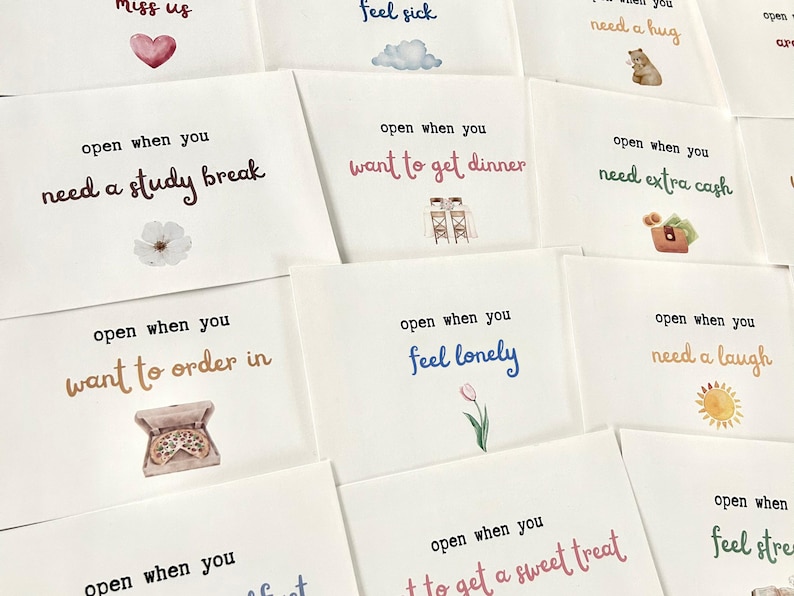 miss us
feel sick
open when you
need a hug
open
open when you
need a study break
open when you
want to get dinner
open when you
need extra cash
open when you
want to order in
open when you
feel lonely
open when you
need a laugh
open when you
open when you
to get a sweet treat
open when
feel